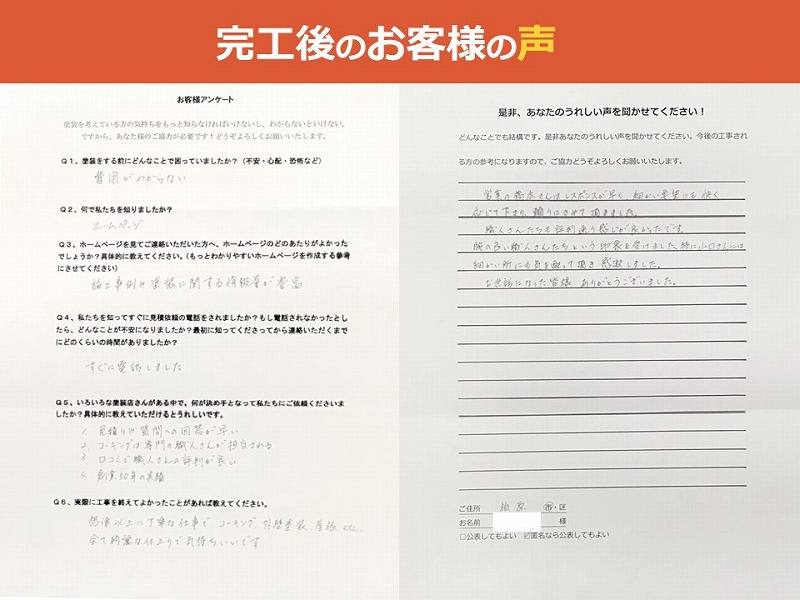 完工後のお客様の声
お客様アンケート
塗装を考えている方の気持ちをもっと知らなければいけないし、わからないといけない。
ですから、あなた様のご協力が必要です！どうぞよろしくお願いいたします。
Q1、塗装をする前にどんなことで困っていましたか？（不安・心配・恐怖など）
費用がわからない
Q2、何で私たちを知りましたか？
ホームページ
Q3、ホームページを見てご連絡いただいた方へ、ホームページのどのあたりがよかった
でしょうか？具体的に教えてください。（もっとわかりやすいホームページを作成する参考
にさせてください）
施工事例や塗装に関する情報量が豊富
Q4、私たちを知ってすぐに見積依頼の電話をされましたか？もし電話されなかったとし
たら、どんなことが不安になりましたか？最初に知ってくださってから連絡いただくまで
にどのくらいの時間がありましたか？
すぐに電話しました
Q5、いろいろな塗装店さんがある中で。何が決め手となって私たちにご依頼くださいま
したか？具体的に教えていただけるとうれしいです。
1. 見積りや質問への回答が早い
2. コーキングは専門の職人さんが担当される
3. 口コミで職人さんの評判が良い
4. 創業50年の実績
Q6、実際に工事を終えてよかったことがあれば教えてください。
想像以上に丁寧な仕事で コーキング、外壁塗装、屋根、etc.
全て綺麗な仕上りで気持ちいいです
是非、あなたのうれしい声を聞かせてください！
どんなことでも結構です。是非あなたのうれしい声を聞かせてください。今後の工事され
る方の参考になりますので、ご協力どうぞよろしくお願いいたします。
営業の橋本さんはレスポンスが早く、細かい要望にも快く
応じて下さり、頼りにさせて頂きました。
職人さんたちも評判通り感じが良かったです。
腕の良い職人さんたちという印象を受けました。特に山口さんには
細かい所にも気を配って頂き感謝しました。
お世話になった皆様、ありがとうございました。
ご住所 柏原 市・区
お名前 様
□公表してもよい ☑匿名なら公表してもよい